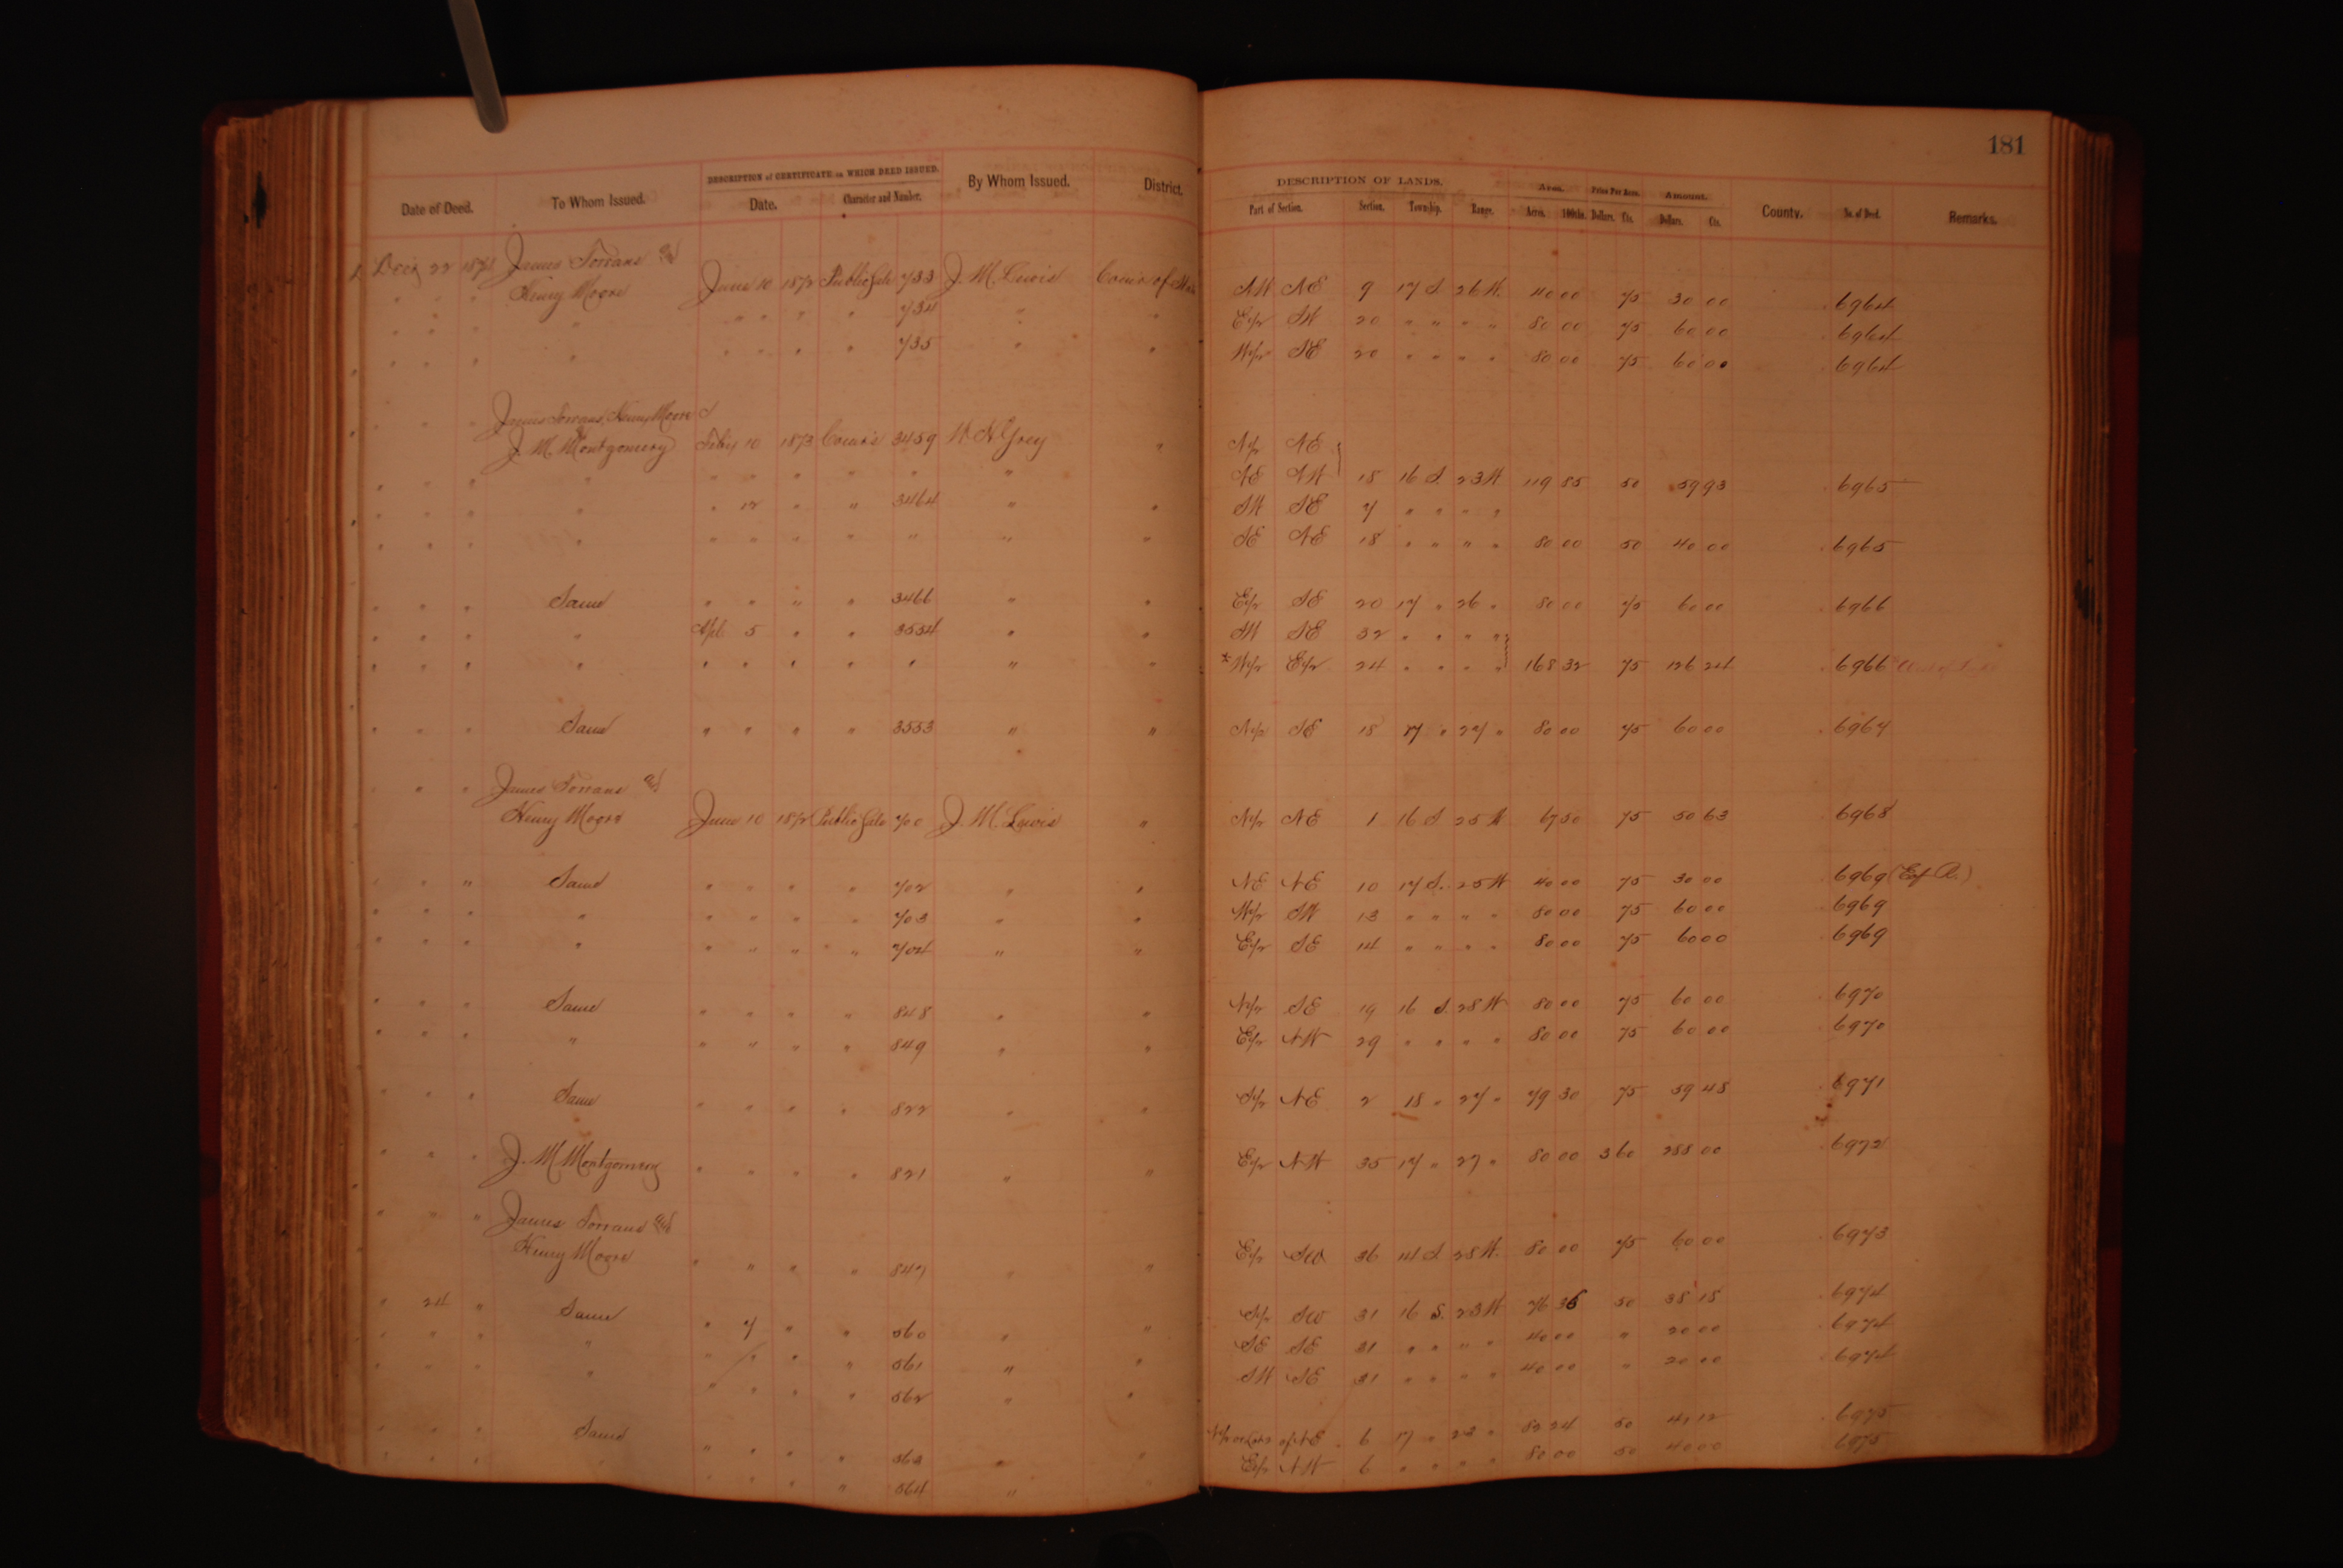 181
DESCRIPTION of CERTIFICATE on WHICH DEED ISSUED.
Date of Deed. To Whom Issued. Date. Character and Number. By Whom Issued. District.
DESCRIPTION OF LANDS. Area. Price Per Acre. Amount.
Part of Section. Section. Township. Range. Acres. 100ths. Dollars. Cts. Dollars. Cts. County. No. of Deed. Remarks.
Decr 22 1873 James Torrans and
" " " Henry Moore June 10 1872 Public Sale 733 J. M. Lewis Comr of NW NE 9 17 S. 26 W. 40 00 75 30 00 6964
" " " " " " " " 734 " " E/2 SW 20 " " " " 80 00 75 60 00 6964
" " " " " " " " 735 " " W/2 SE 20 " " " " 80 00 75 60 00 6964
" " " James Torrans, Henry Moore &
J. M. Montgomery Feby 10 1873 Comr's 3459 W N Grey " N/2 NE
" " " " " " " " " " NE NW 18 16 S. 23 W 119 85 50 59 93 6965
" " " " " 12 " " 3464 " " SW SE 7 " " " "
" " " " " " " " " " " SE NE 18 " " " " 80 00 50 40 00 6965
" " " Same " " " " 3466 " " E/2 SE 20 17 " 26 " 80 00 75 60 00 6966
" " " " Apl 5 " " 3554 " " SW SE 32 " " " "
" " " " " " " " " " " W/2 E/2 24 " " " " 168 32 75 126 24 6966
" " " Same " " " " 3553 " " N/2 SE 18 17 " 27 " 80 00 75 60 00 6967
" " " James Torrans and
Henry Moore June 10 1872 Public Sale 700 J. M. Lewis " N/2 NE 1 16 S 25 W 67 50 75 50 63 6968
" " " Same " " " " 702 " " NE NE 10 17 S. 25 W 40 00 75 30 00 6969
" " " " " " " " 703 " " W/2 SW 13 " " " " 80 00 75 60 00 6969
" " " " " " " " 704 " " E/2 SE 14 " " " " 80 00 75 60 00 6969
" " " Same " " " " 848 " " N/2 SE 19 16 S. 28 W 80 00 75 60 00 6970
" " " " " " " " 849 " " E/2 NW 29 " " " " 80 00 75 60 00 6970
" " " Same " " " " 822 " " S/2 NE 2 18 " 27 " 79 30 75 59 48 6971
" " " J. M Montgomery " " " " 821 " " E/2 NW 35 17 " 27 " 80 00 3 60 288 00 6972
" " " James Torrans and
Henry Moore " " " " 847 " " E/2 SW 36 14 S. 28 W. 80 00 75 60 00 6973
" 24 " Same " 7 " " 560 " " S/2 SW 31 16 S. 23 W 76 36 50 38 18 6974
" " " " " " " " 561 " " SE SE 31 " " " " 40 00 " 20 00 6974
" " " " " " " " 562 " " SW SE 31 " " " " 40 00 " 20 00 6974
" " " Same " " " " 563 " " of NE 6 17 " 23 " 82 24 50 41 12 6975
" " " " " " " " 564 " " E/2 NW 6 " " " " 80 00 50 40 00 6975